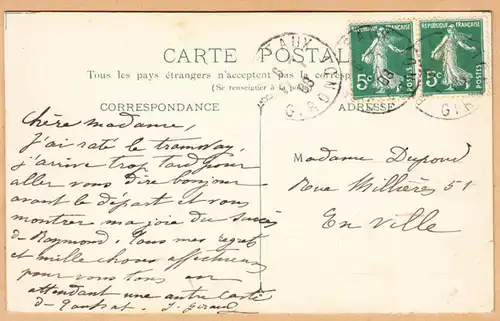 CARTE POSTALE
Tous les pays étrangers n'acceptent pas la corresp
(Se renseigner à la p
CORRESPONDANCE
ADRESSE
RÉPUBLIQUE FRANÇAISE
5c
RÉPUBLIQUE FRANÇAISE
5c
AUX
GIRONDE
08
Chère madame,
J'ai raté le tramway,
j'arrive trop tard pour
aller vous dire bonjour
avant le départ et vous
montrer ma joie du succès
de Raymond. Tous mes regrets
et mille choses affectueuses
pour vous tous en
attendant une autre carte
de J. Giraud
Madame Dupond
Rue Millières 51
En Ville